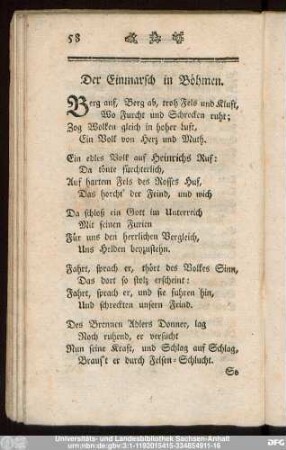 58
Der Einmarsch in Böhmen.
Berg auf, Berg ab, trotz Fels und Kluft,
Wo Furcht und Schrecken ruht;
Zog Wolken gleich in hoher Luft,
Ein Volk von Herz und Muth.
Ein edles Volk auf Heinrichs Ruf:
Da tönte fürchterlich,
Auf hartem Fels des Rosses Huf,
Das horcht' der Feind, und wich
Da schloß ein Gott im Unterreich
Mit seinen Furien
Für uns den herrlichen Vergleich,
Uns Helden beyzustehn.
Fahrt, sprach er, thört des Volkes Sinn,
Das dort so stolz erscheint:
Fahrt, sprach er, und sie fuhren hin,
Und schreckten unsern Feind.
Des Brennen Adlers Donner, lag
Noch ruhend, er versucht
Nun seine Kraft, und Schlag auf Schlag,
Braus't er durch Felsen-Schlucht.
So
Universitäts- und Landesbibliothek Sachsen-Anhalt
urn:nbn:de:gbv:3:1-1192015415-334654911-16